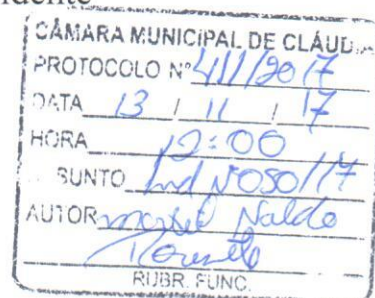 idente
CÂMARA MUNICIPAL DE CLÁUD
PROTOCOLO Nº 411/2017
DATA 13 / 11 / 17
HORA 12:00
SUNTO Ind Nº 050/17
AUTOR Naldo
RUBR. FUNC.